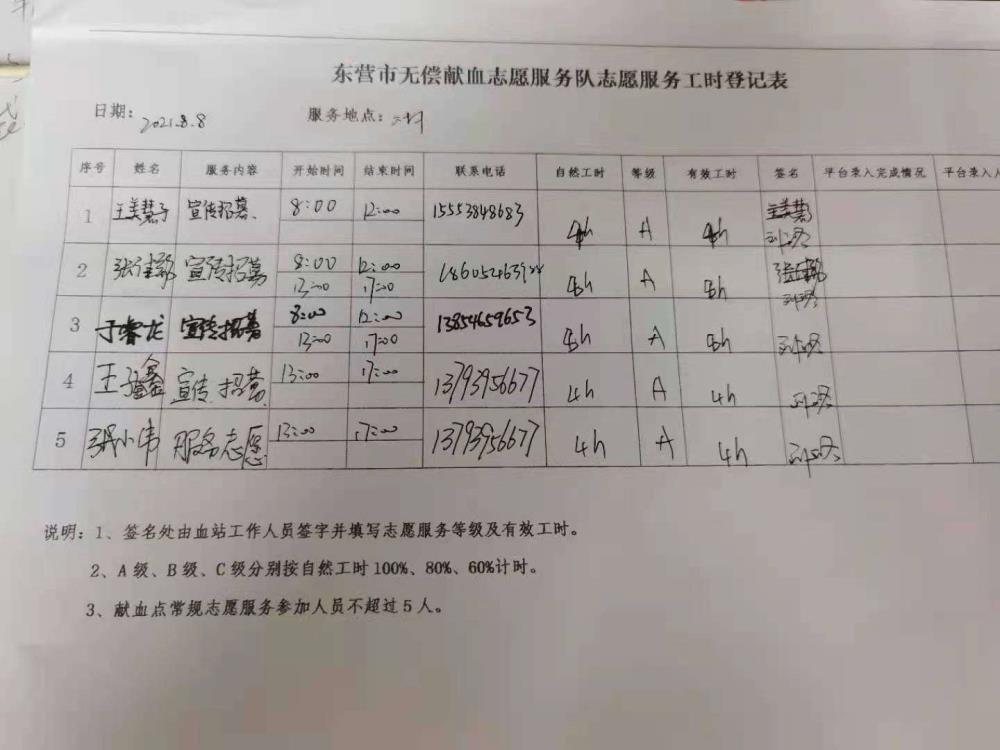 东营市无偿献血志愿服务队志愿服务工时登记表
日期：2021.8.8 服务地点：
序号 姓名 服务内容 开始时间 结束时间 联系电话 自然工时 等级 有效工时 签名 平台录入完成情况 平台录入人
1 王美慧子 宣传招募 8:00 12:00 15553848683 4h A 4h
2 宣传招募 8:00 12:00 8h A 8h
13:00 17:00
3 于睿龙 宣传招募 8:00 12:00 13854659653 8h A 8h
13:00 17:00
4 王子鑫 宣传招募 13:00 17:00 13793956677 4h A 4h
5 张小伟 服务志愿 13:00 17:00 13793956677 4h A 4h
说明：1、签名处由血站工作人员签字并填写志愿服务等级及有效工时。
2、A级、B级、C级分别按自然工时100%、80%、60%计时。
3、献血点常规志愿服务参加人员不超过5人。